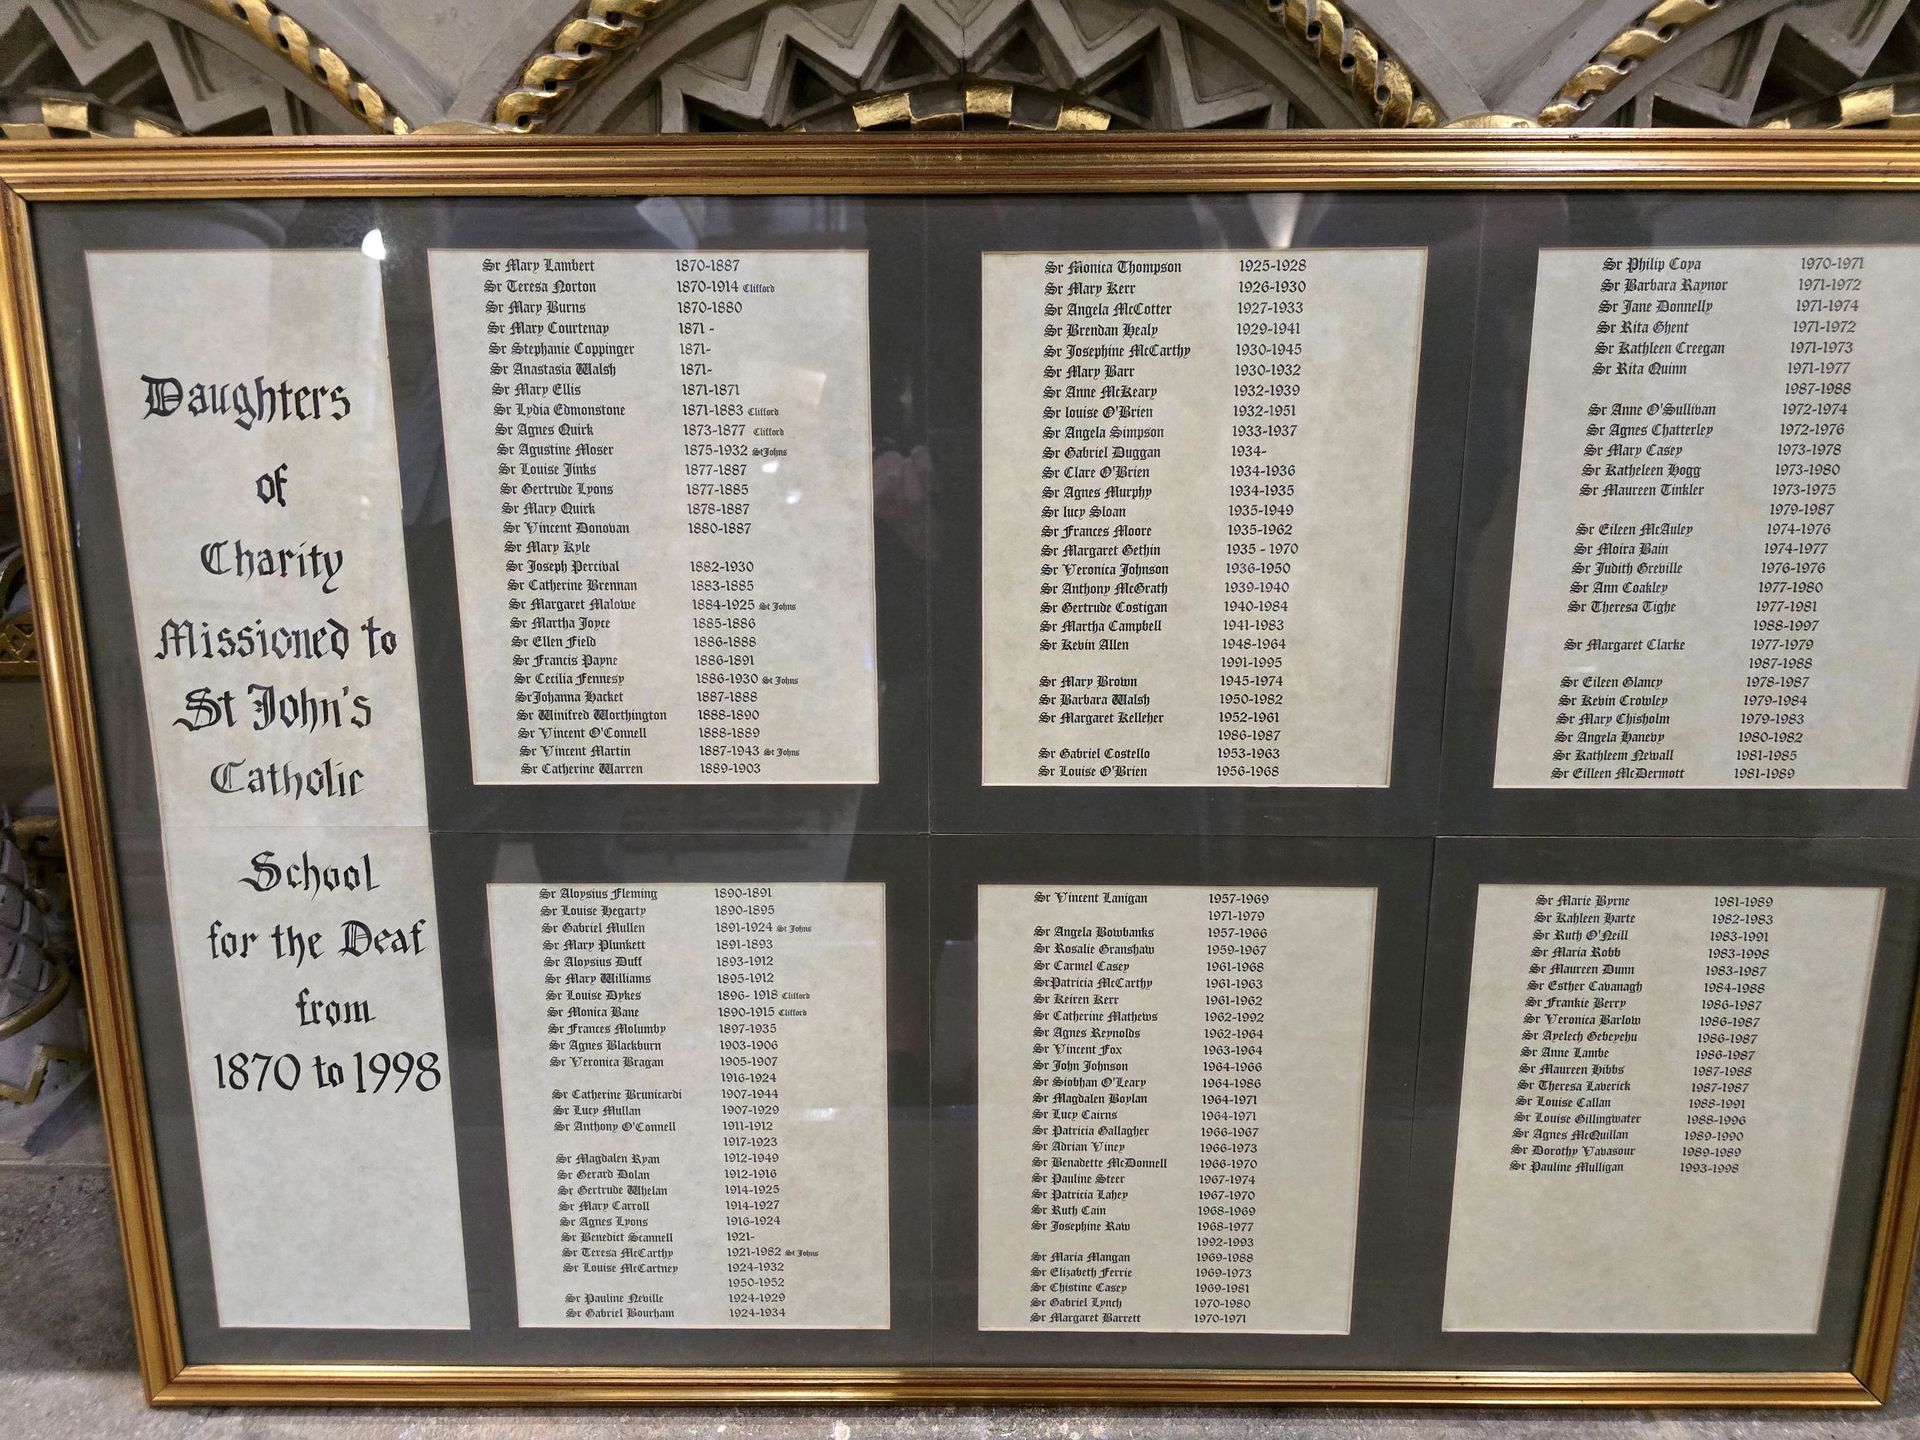 Daughters
of
Charity
Missioned to
St John's
Catholic
School
for the Deaf
from
1870 to 1998
Sr Mary Lambert 1870-1887
Sr Teresa Norton 1870-1914 Clifford
Sr Mary Burns 1870-1880
Sr Mary Courtenay 1871 -
Sr Stephanie Coppinger 1871-
Sr Anastasia Walsh 1871-
Sr Mary Ellis 1871-1871
Sr Lydia Edmonstone 1871-1883 Clifford
Sr Agnes Quirk 1873-1877 Clifford
Sr Agustine Moser 1875-1932 StJohns
Sr Louise Jinks 1877-1887
Sr Gertrude Lyons 1877-1885
Sr Mary Quirk 1878-1887
Sr Vincent Donovan 1880-1887
Sr Mary Kyle
Sr Joseph Percival 1882-1930
Sr Catherine Brennan 1883-1885
Sr Margaret Malowe 1884-1925 St Johns
Sr Martha Joyce 1885-1886
Sr Ellen Field 1886-1888
Sr Francis Payne 1886-1891
Sr Cecilia Fennesy 1886-1930 St Johns
SrJohanna Hacket 1887-1888
Sr Winifred Worthington 1888-1890
Sr Vincent O'Connell 1888-1889
Sr Vincent Martin 1887-1943 St Johns
Sr Catherine Warren 1889-1903
Sr Aloysius Fleming 1890-1891
Sr Louise Hegarty 1890-1895
Sr Gabriel Mullen 1891-1924 St Johns
Sr Mary Plunkett 1891-1893
Sr Aloysius Duff 1893-1912
Sr Mary Williams 1895-1912
Sr Louise Dykes 1896- 1918 Clifford
Sr Monica Bane 1890-1915 Clifford
Sr Frances Molumby 1897-1935
Sr Agnes Blackburn 1903-1906
Sr Veronica Bragan 1905-1907
1916-1924
Sr Catherine Brunicardi 1907-1944
Sr Lucy Mullan 1907-1929
Sr Anthony O'Connell 1911-1912
1917-1923
Sr Magdalen Ryan 1912-1949
Sr Gerard Dolan 1912-1916
Sr Gertrude Whelan 1914-1925
Sr Mary Carroll 1914-1927
Sr Agnes Lyons 1916-1924
Sr Benedict Scannell 1921-
Sr Teresa McCarthy 1921-1982 St Johns
Sr Louise McCartney 1924-1932
1950-1952
Sr Pauline Neville 1924-1929
Sr Gabriel Bourham 1924-1934
Sr Monica Thompson 1925-1928
Sr Mary Kerr 1926-1930
Sr Angela McCotter 1927-1933
Sr Brendan Healy 1929-1941
Sr Josephine McCarthy 1930-1945
Sr Mary Barr 1930-1932
Sr Anne McKeary 1932-1939
Sr louise O'Brien 1932-1951
Sr Angela Simpson 1933-1937
Sr Gabriel Duggan 1934-
Sr Clare O'Brien 1934-1936
Sr Agnes Murphy 1934-1935
Sr lucy Sloan 1935-1949
Sr Frances Moore 1935-1962
Sr Margaret Gethin 1935 - 1970
Sr Veronica Johnson 1936-1950
Sr Anthony McGrath 1939-1940
Sr Gertrude Costigan 1940-1984
Sr Martha Campbell 1941-1983
Sr Kevin Allen 1948-1964
1991-1995
Sr Mary Brown 1945-1974
Sr Barbara Walsh 1950-1982
Sr Margaret Kelleher 1952-1961
1986-1987
Sr Gabriel Costello 1953-1963
Sr Louise O'Brien 1956-1968
Sr Vincent Lanigan 1957-1969
1971-1979
Sr Angela Bowbanks 1957-1966
Sr Rosalie Granshaw 1959-1967
Sr Carmel Casey 1961-1968
SrPatricia McCarthy 1961-1963
Sr Keiren Kerr 1961-1962
Sr Catherine Mathews 1962-1992
Sr Agnes Reynolds 1962-1964
Sr Vincent Fox 1963-1964
Sr John Johnson 1964-1966
Sr Siobhan O'Leary 1964-1986
Sr Magdalen Boylan 1964-1971
Sr Lucy Cairns 1964-1971
Sr Patricia Gallagher 1966-1967
Sr Adrian Viney 1966-1973
Sr Benadette McDonnell 1966-1970
Sr Pauline Steer 1967-1974
Sr Patricia Lahey 1967-1970
Sr Ruth Cain 1968-1969
Sr Josephine Raw 1968-1977
1992-1993
Sr Maria Mangan 1969-1988
Sr Elizabeth Ferrie 1969-1973
Sr Chistine Casey 1969-1981
Sr Gabriel Lynch 1970-1980
Sr Margaret Barrett 1970-1971
Sr Philip Coya 1970-1971
Sr Barbara Raynor 1971-1972
Sr Jane Donnelly 1971-1974
Sr Rita Ghent 1971-1972
Sr Kathleen Creegan 1971-1973
Sr Rita Quinn 1971-1977
1987-1988
Sr Anne O'Sullivan 1972-1974
Sr Agnes Chatterley 1972-1976
Sr Mary Casey 1973-1978
Sr Katheleen Hogg 1973-1980
Sr Maureen Tinkler 1973-1975
1979-1987
Sr Eileen McAuley 1974-1976
Sr Moira Bain 1974-1977
Sr Judith Greville 1976-1976
Sr Ann Coakley 1977-1980
Sr Theresa Tighe 1977-1981
1988-1997
Sr Margaret Clarke 1977-1979
1987-1988
Sr Eileen Glancy 1978-1987
Sr Kevin Crowley 1979-1984
Sr Mary Chisholm 1979-1983
Sr Angela Haneby 1980-1982
Sr Kathleem Newall 1981-1985
Sr Eilleen McDermott 1981-1989
Sr Marie Byrne 1981-1989
Sr Kahleen Harte 1982-1983
Sr Ruth O'Neill 1983-1991
Sr Maria Robb 1983-1998
Sr Maureen Dunn 1983-1987
Sr Esther Cavanagh 1984-1988
Sr Frankie Berry 1986-1987
Sr Veronica Barlow 1986-1987
Sr Ayelech Gebeyehu 1986-1987
Sr Anne Lambe 1986-1987
Sr Maureen Hibbs 1987-1988
Sr Theresa Laverick 1987-1987
Sr Louise Callan 1988-1991
Sr Louise Gillingwater 1988-1996
Sr Agnes McQuillan 1989-1990
Sr Dorothy Vavasour 1989-1989
Sr Pauline Mulligan 1993-1998